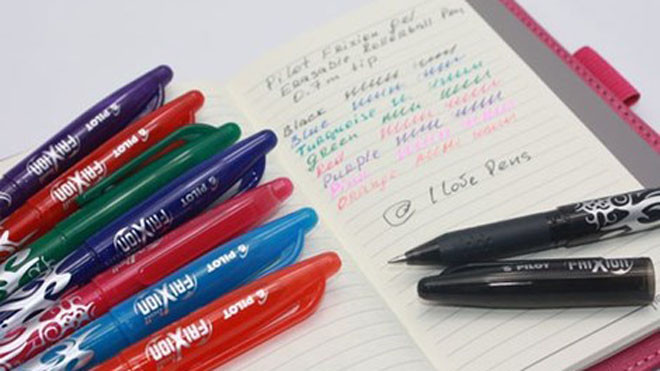 Pilot Frixion Gel
Erasable Rollerball Pen
0.7m tip
Black
Blue
Turquoise
Green
Red
Purple
Pink
Orange
@ I Love Pens
PILOT
FRIXION
PILOT
FRIXION
PILOT
FRIXION
PILOT
FRIXION
PILOT
FRIXION
PILOT
FRIXION
PILOT
FRIXION